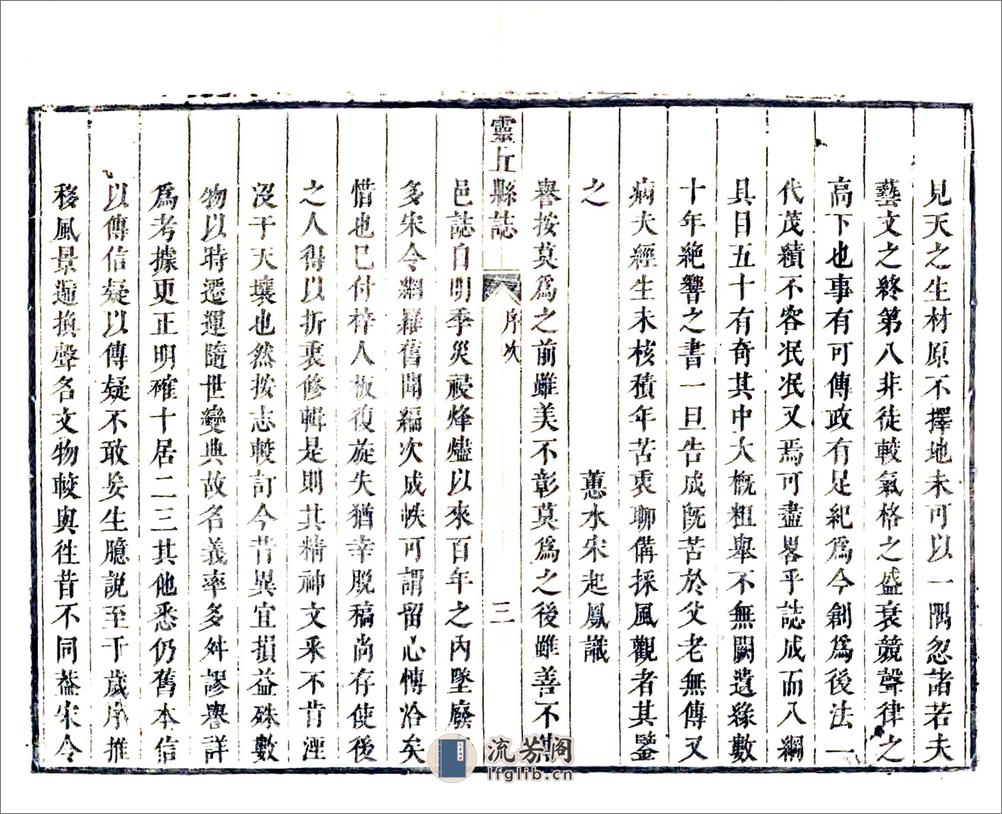 見天之生材原不擇地未可以一隅忽諸若夫
藝文之終第八非徒較氣格之盛衰競聲律之
高下也事有可傳政有足紀爲今創爲後法一
代茂績不容泯泯又焉可盡畧乎誌成而入綱
具目五十有奇其中大槪粗舉不無闕遺緣數
十年絶響之書一旦告成旣苦於父老無傳又
病夫經生未核積年苦衷聊備採風觀者其鑒
之
蕙水宋起鳳識
譽按莫爲之前雖美不彰莫爲之後雖善不
靈丘縣誌
序次
三
邑誌自明季災祲烽燼以來百年之內墜廢
多宋令網羅舊聞編次成帙可謂留心博洽矣
惜也已付梓人板復旋失猶幸脫稿尚存使後
之人得以折衷修輯是則其精神文采不肯湮
沒于天壤也然按志較訂今昔異宜損益殊數
物以時遷運隨世變典故名義率多舛謬譽詳
爲考據更正明確十居二三其他悉仍舊本信
以傳信疑以傳疑不敢妄生臆説至于歲序推
移風景遞換聲名文物較與徃昔不同葢宋令
流芳阁
lfglib.cn